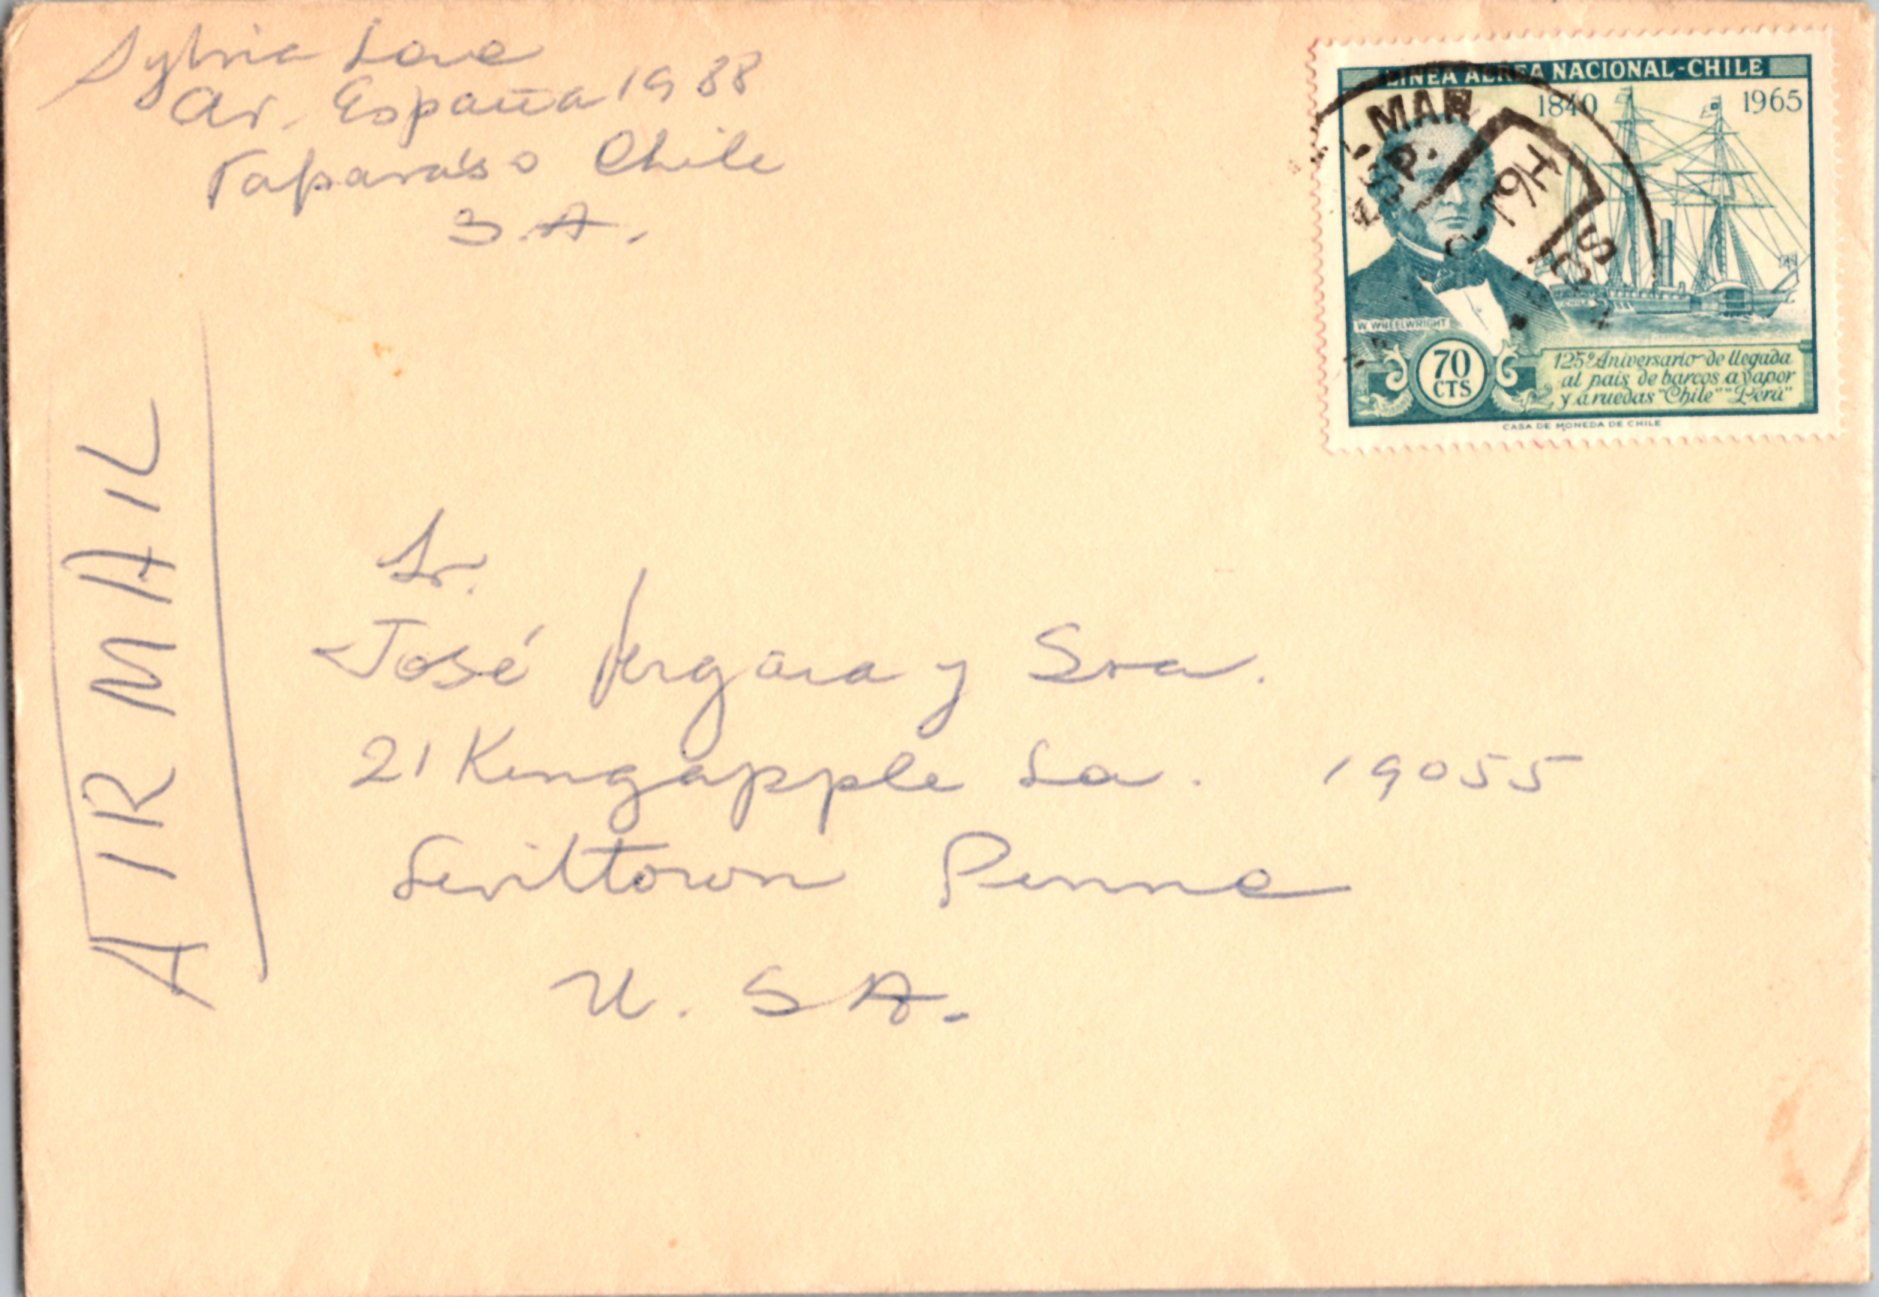 Sylvia Love
Av. España 1988
Valparaíso Chile
S.A.
LINEA AEREA NACIONAL-CHILE
1840 1965
MAR
W. WHEELWRIGHT
70
CTS
125º Aniversario de llegada
al pais de barcos a vapor
y a ruedas "Chile" "Perú"
CASA DE MONEDA DE CHILE
AIRMAIL
Sr.
José Vergara y Sra.
21 Kingapple La. 19055
Levittown Penna
U.SA.